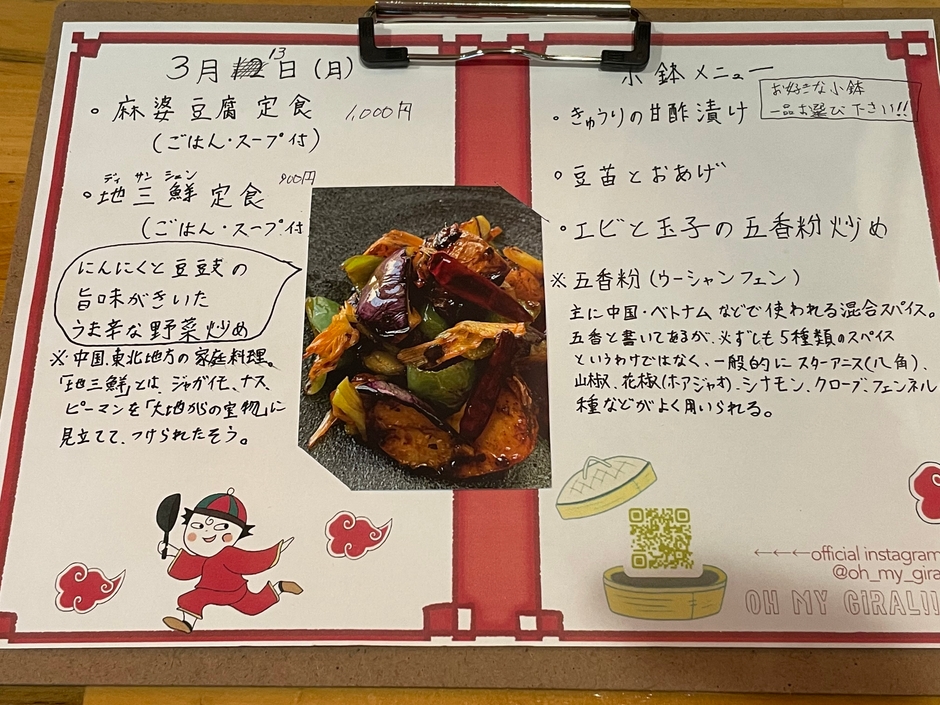 3月13日(月)
・麻婆豆腐定食 1,000円
(ごはん・スープ付)
ディ サン シェン
・地三鮮定食 900円
(ごはん・スープ付
にんにくと豆豉の
旨味がきいた
うま辛な野菜炒め
※中国、東北地方の家庭料理。
「地三鮮」とは、ジャガイモ、ナス、
ピーマンを「大地からの宝物」に
見立てて、つけられたそう。
小鉢メニュー
お好きな小鉢
一品お選び下さい!!
・きゅうりの甘酢漬け
・豆苗とおあげ
・エビと玉子の五香粉炒め
※五香粉(ウーシャンフェン)
主に中国・ベトナムなどで使われる混合スパイス。
五香と書いてあるが、必ずしも5種類のスパイス
というわけではなく、一般的にスターアニス(八角)、
山椒、花椒(ホアジャオ)、シナモン、クローブ、フェンネル
種などがよく用いられる。
←←←official instagram
@oh_my_gira
OH MY GIRALI!